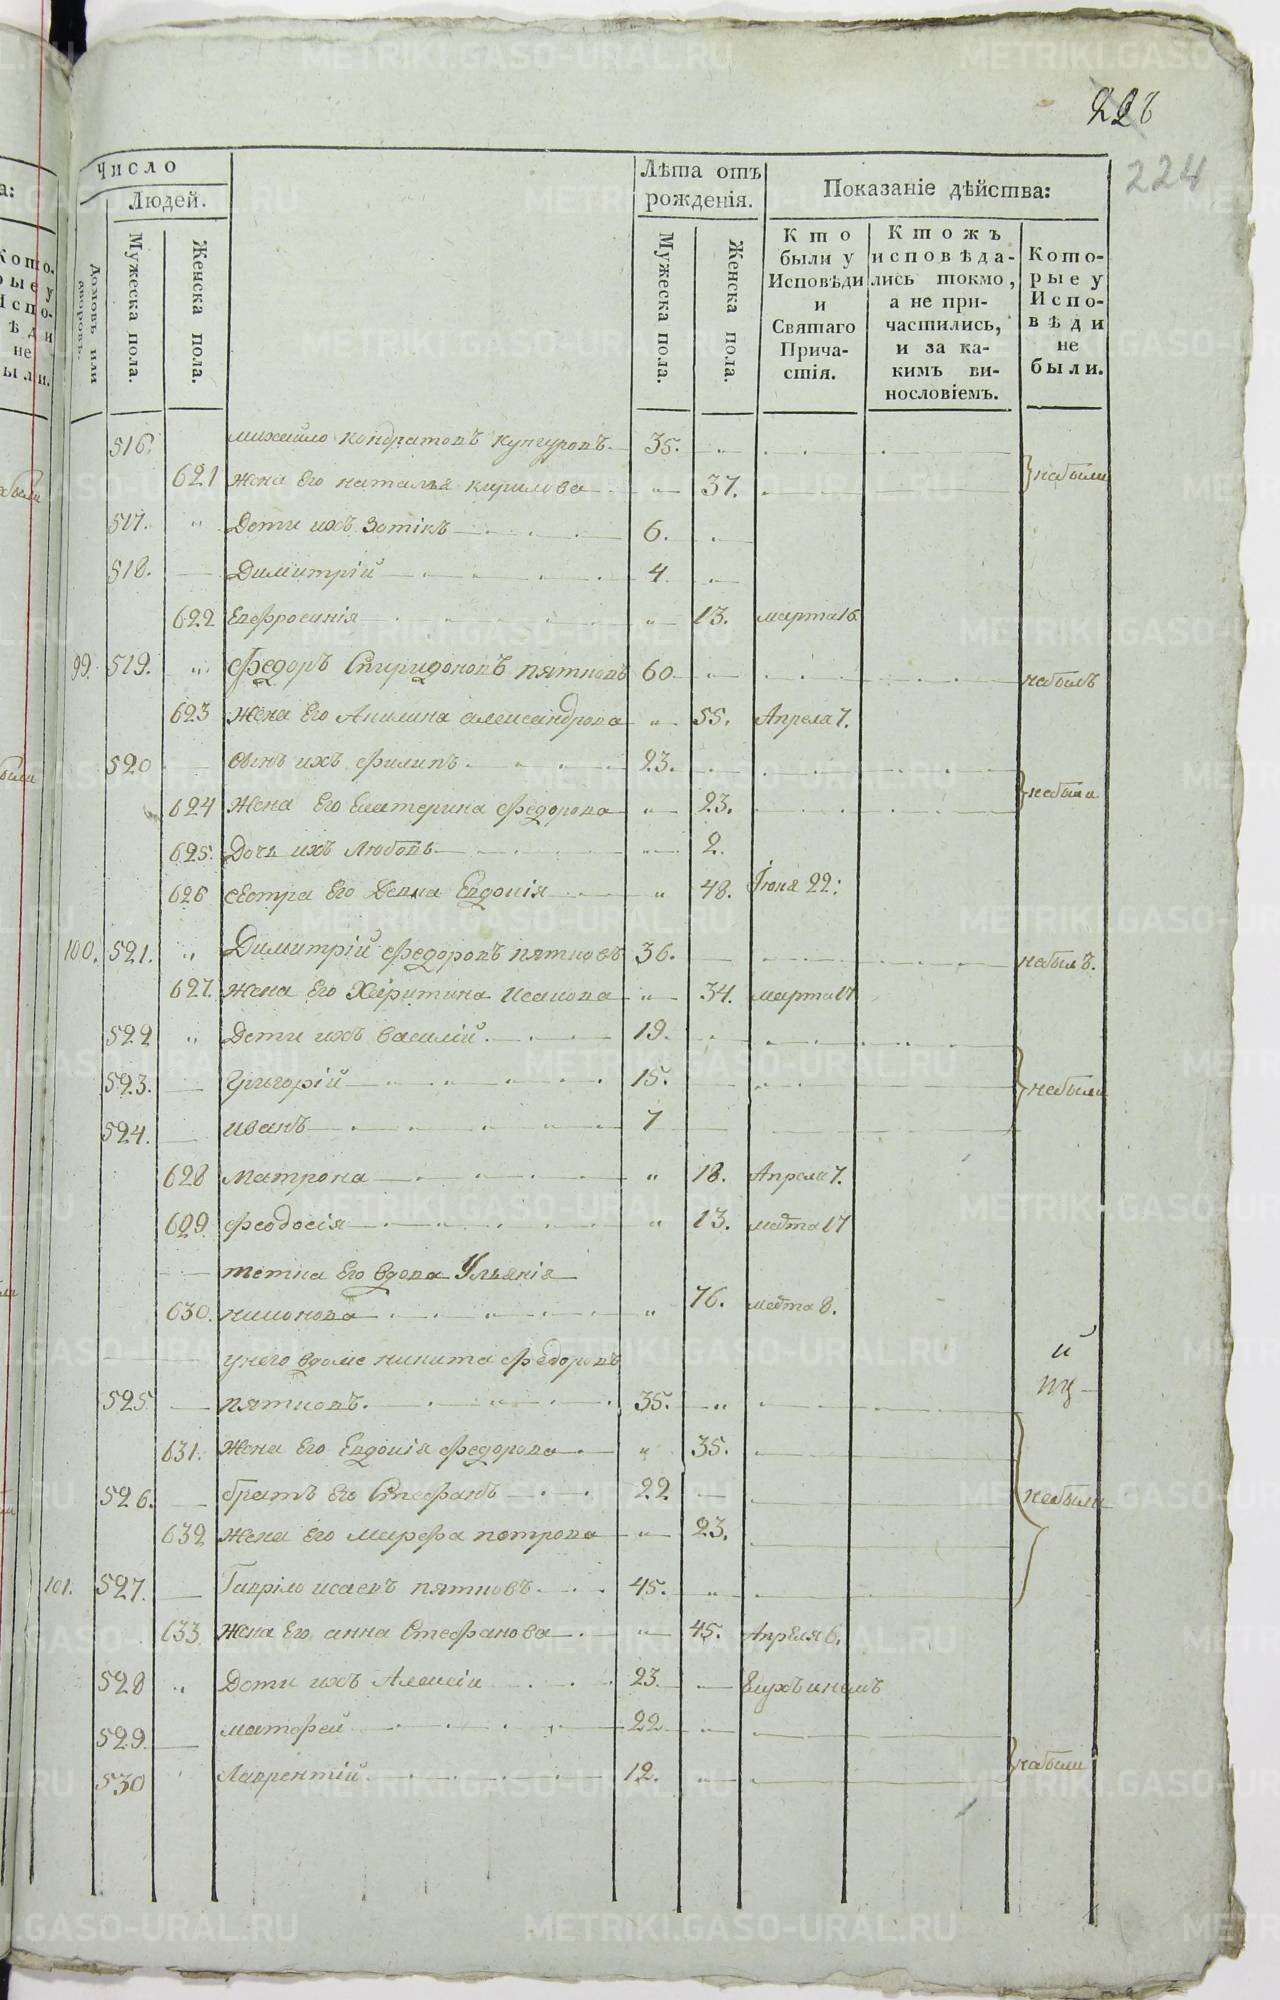 228
224
Число
Людей.
Домовъ или дворовъ.
Мужеска пола.
Женска пола.
Лѣта отъ рожденія.
Мужеска пола.
Женска пола.
Показаніе дѣйства:
Кто были у Исповѣди и Святаго Причастія.
Ктожъ исповѣдались токмо, а не причастились, и за какимъ винословіемъ.
Которые у Исповѣди не были.
516. михайло кондратовъ кунгуровъ 35.
621 жена Его наталья кирилова 37. небыли
517. Дети ихъ Зотікъ 6.
518. Димитрій 4
622 Евфросинія 13. марта 16
99. 519. Федоръ Спиридоновъ пятковъ 60 небылъ
623 жена Его Акилина александрова 55. Апреля 7.
520 сынъ ихъ филипъ 23.
624 жена Его Екатерина федорова 23. небыли
625. Дочь ихъ Любовь 2.
626 сестра Его Девка Евдокія 48. Іюня 22:
100. 521. Димитрій федоровъ пятковъ 36. небылъ.
627. жена Его Харитина исакова 34. марта 17
522 Дети ихъ василій 19.
523. Григорій 15. небыли
524. иванъ 7
628 матрона 18. Апреля 7.
629. феодосія 13. марта 17
тетка Его вдова Ульянія
630. никонова 76. марта 8.
унего вдоме никита федоровъ
525 пятковъ. 35.
631. жена Его Евдокія федорова 35.
526. братъ Его Стефанъ 22 небыли
632 жена Его марфа петрова 23.
101. 527. Гаврiло исаевъ пятковъ 45.
633. жена Его анна Стефанова 45. Апреля 6.
528 Дети ихъ Алексій 23. Глухъ инемъ
529. матфей 22
530 Лаврентій 12. небыли
METRIKI.GASO-URAL.RU